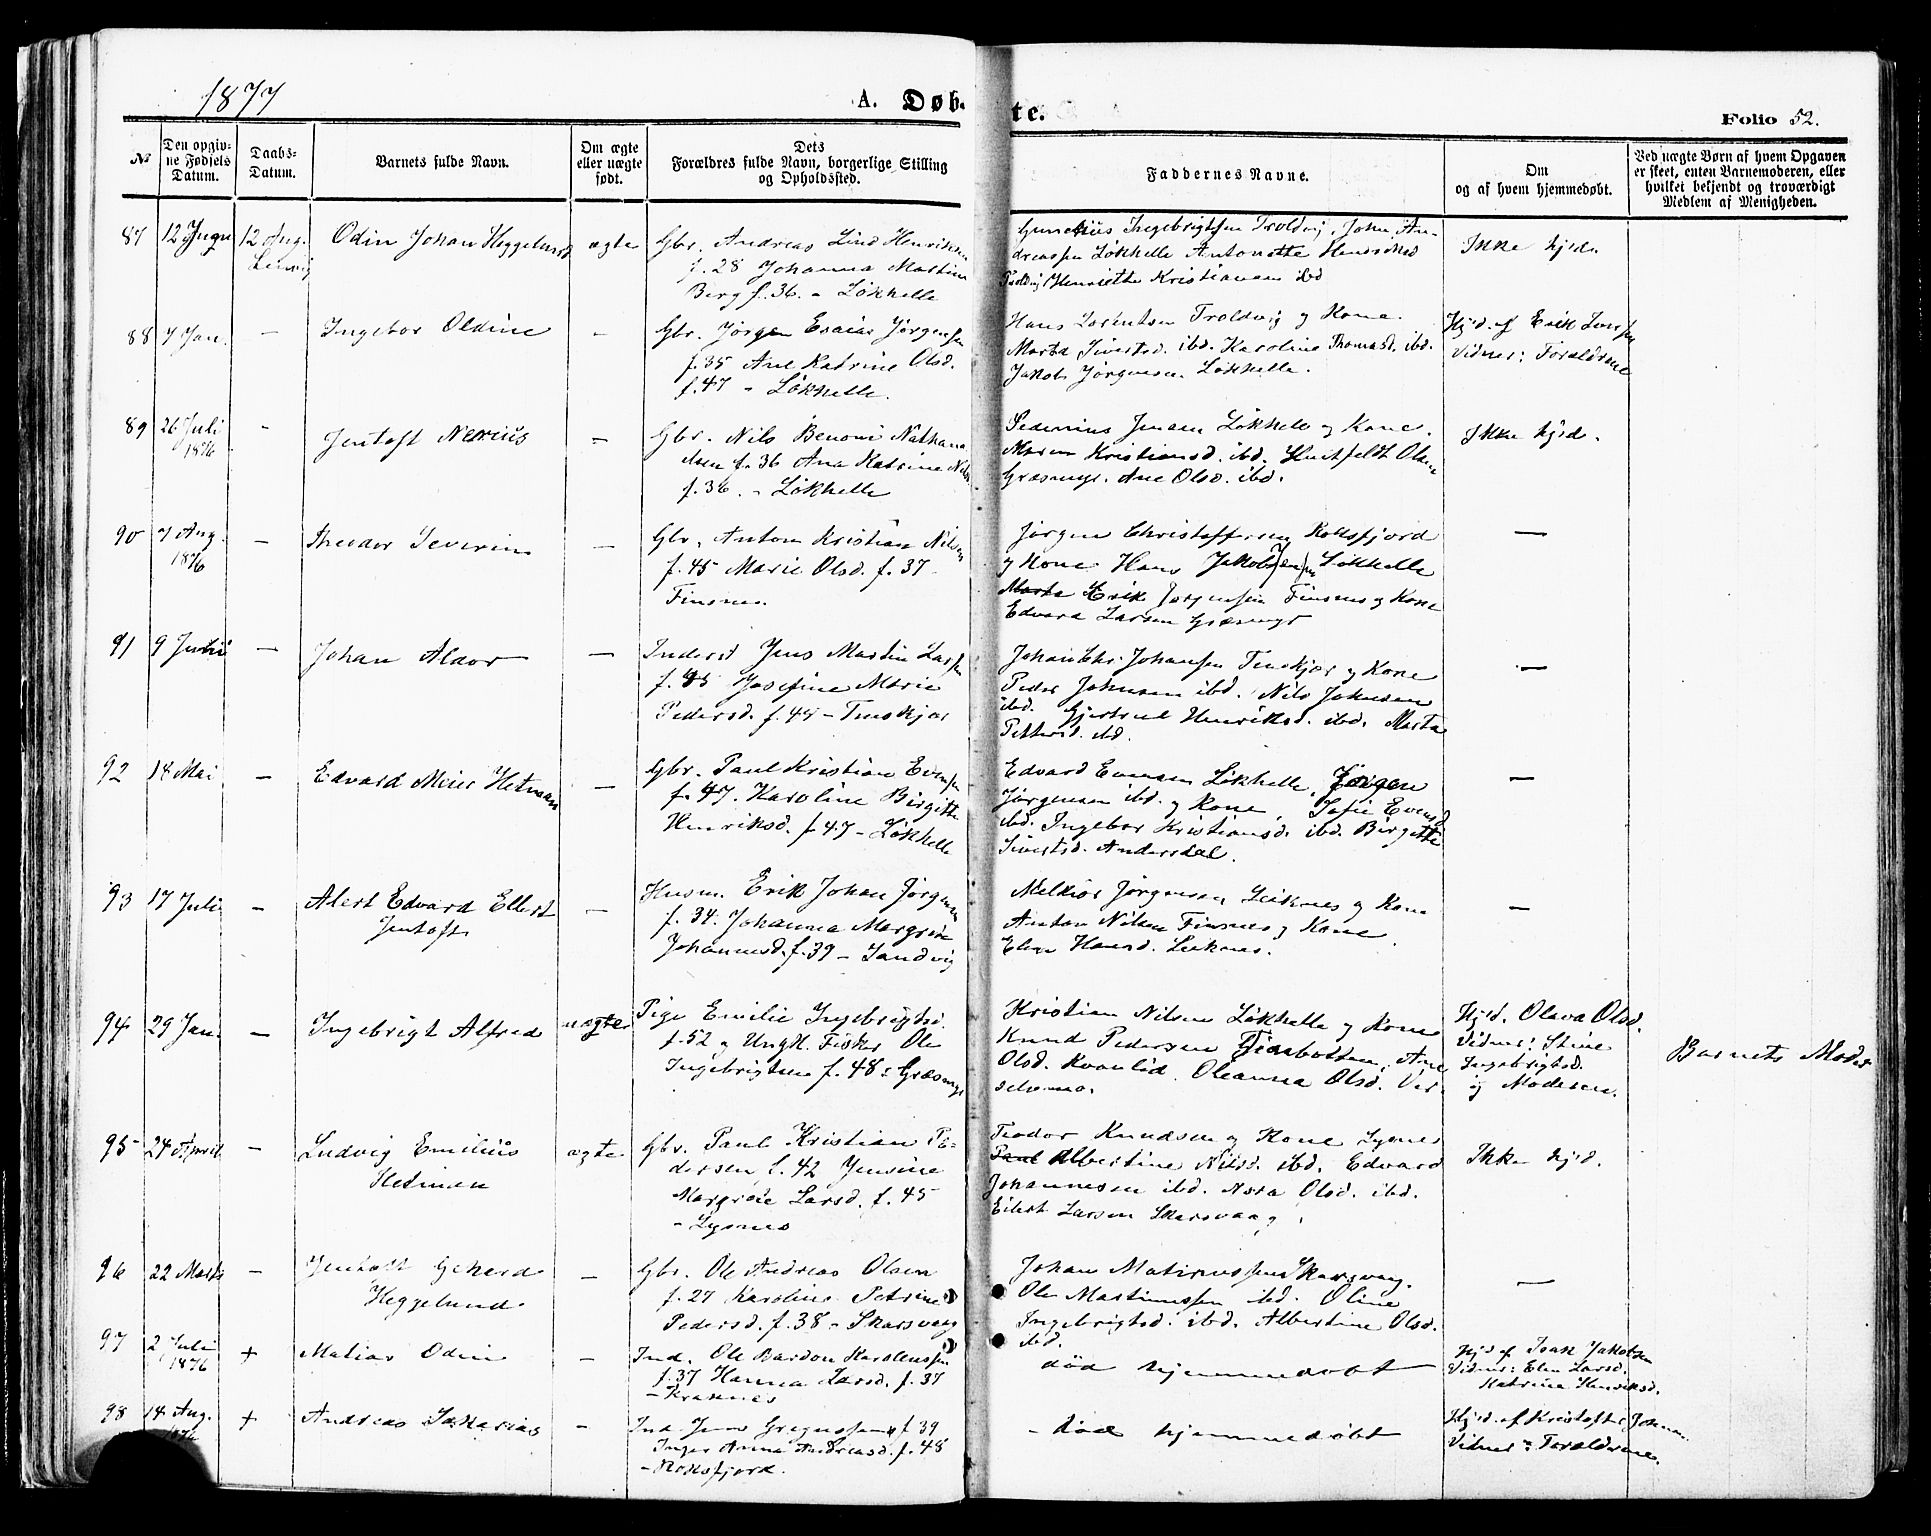 1877
A. Døbte.
Folio 52.
№
Den opgivne Fødsels Datum.
Daabs-Datum.
Barnets fulde Navn.
Om ægte eller uægte født.
Dets Forældres fulde Navn, borgerlige Stilling og Opholdssted.
Faddernes Navne.
Om og af hvem hjemmedøbt.
Ved uægte Børn af hvem Opgaven er skeet, enten Barnemoderen, eller hvilket bekjendt og troværdigt Medlem af Menigheden.
87 12 12 Aug. Odin Johan Heggelund ægte
Gbr. Andreas Lind Henriksen
f. 28 Johanna Martine
Berg f. 36. - Løkhelle
Ingebrigtsen Troldvig, John An-
dreassen Løkhelle Antonette
Henriette Kristiansen ibd
Ikke hjd.
88 7 Jan. - Ingebor Oldine -
Gbr. Jørgen Esaias Jørgensen
f. 35 Ane Katrine Olsd.
f. 47 - Løkhelle.
Hans Lorentsen Troldvig og Kone.
Marta Sivertsd. ibd. Karoline Thomasd. ibd.
Jakob Jørgensen Løkhelle.
Hjd. af Erik
Vidner: Forældrene
89 26 Juli 1876 - Jentoft Nerius -
Gbr. Nils Benoni Nathana
elsen f. 36 Ana Katrine Nilsd
f. 36. - Løkhelle
Pedersius Jensen Løkhelle og Kone.
Maren Kristiansd. ibd. Huitfeldt Olsen
Græsmyr. Ane Olsd. ibd.
Ikke hjd.
90 7 Aug. 1876 - Theodor Severin -
Gbr. Anton Kristian Nilsen
f. 45 Marie Olsd. f. 37
Finsnes.
Jørgen Christoffersen Roksfjord
og Kone Hans Jakob Jensen Løkhelle
Marta Erik Jørgensen Finsnes og Kone
Edvard Larsen Græsmyr
-
91 9 Juli - Johan Aldor -
Inderst Jens Martin Larsen
f. 45 Josefine Marie
Pedersd. f. 44 - Tenskjær
Johan Chr. Johansen Tenskjær og Kone
Peder Johnsen ibd. Nils Johnsen
ibd. Gjertrud Henriksd. ibd. Marta
Pettersd. ibd.
-
92 18 Mai - Edvard Meier Hetman -
Gbr. Paul Kristian Evensen
f. 47. Karoline Birgitte
Henriksd. f 47 - Løkhelle
Edvard Evensen Løkhelle, Jørgen
Jørgensen ibd. og Kone, Sofie Evensd
ibd. Ingebor Kristiansd. ibd. Birgitte
Sivertsd. Andersdal.
-
93 17 Juli - Alert Edvard Ellert
Jentoft
-
Husm. Erik Johan Jørgensen
f. 34. Johanna Margrete
Johannesd. f. 39 - Sandvig
Melkior Jørgensen Leiknes og Kone
Anton Nilsen Finsnes og Kone
Elen Hansd. Leiknes.
-
94 29 Jan. - Ingebrigt Alfred uægte
Pige Emilie Ingebrigtsd.
f. 52 og Ungk. Fisker Ole
Ingebrigtsen f. 48: Græsmyr
Kristian Nilsen Løkhelle og Kone
Knud Pedersen Fiarbotten, Ane
Olsd. Kvanlid. Oleanna Olsd. Ver-
Hjd. Oleva Olsd.
Vidner: Stine
Ingebrigtsd.
og Moderen.
Barnets Moder
95 24 April - Ludvig Emilius
Hetman
ægte
Gbr. Paul Kristian Pe-
dersen f. 42 Jensine
Margrete Larsd. f. 45
- Lysnes
Teodor Knudsen og Kone Lysnes
Paul Albertine Nilsd. ibd. Edvard
Johannesen ibd. Nora Olsd. ibd.
Eilert Larsen Skarsvaag.
Ikke hjd.
96 22 Marts - Jentoft Gerhard
Heggelund.
-
Gbr. Ole Andreas Olsen
f. 27 Karoline Petrine
Pedersd. f. 38 - Skarsvaag
Johan Matinussen Skarsvaag.
Ole Martinussen ibd. Oline
Ingebrigtsd. ibd. Albertine Olsd.
ibd.
-
97 2 Juli 1876 + Matias Odin -
Ind. Ole Bardon Karolussen
f. 37 Hanna Larsd. f. 37
- Kraknes
død hjemmedøbt
Hjd af Isak Jakobsen
Vidner: Elen Larsd.
Katrine Henriksd.
98 14 Aug. 1876 + Andreas Sakarias -
Ind. Jens Gregussen f 39
Inger Anna Andreasd. f. 48
- Roksfjord.
- død hjemmedøbt
Hjd. af Kristoffer Johansen
Vidner: Forældrene.